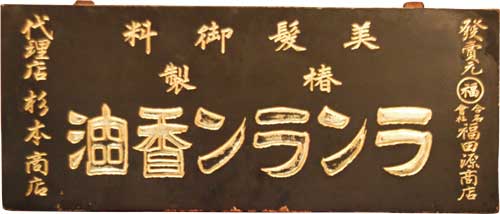 發賣元 ㊝ 福田源商店
美髮御料
椿製
ランラン香油
代理店 杉本商店